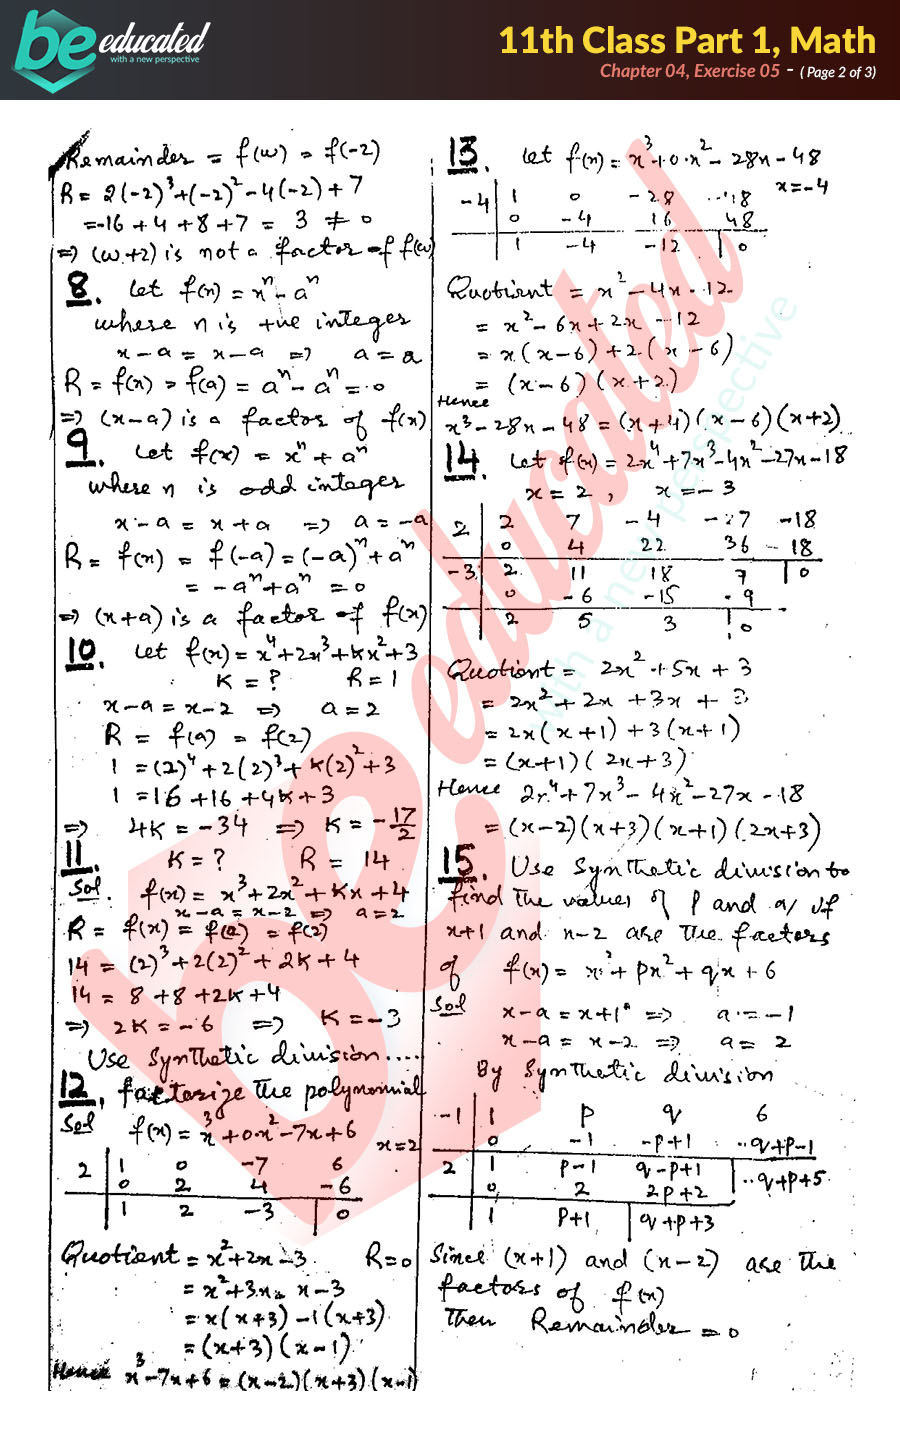 be educated
with a new perspective
11th Class Part 1, Math
Chapter 04, Exercise 05 - ( Page 2 of 3)
Remainder = f(w) = f(-2)
R = 2(-2)³+(-2)²-4(-2)+7
=-16+4+8+7 = 3 ≠ 0
⇒ (w+2) is not a factor of f(w)
8. Let f(x) = xⁿ - aⁿ
where n is +ive integer
x-a = x-a ⇒ a = a
R = f(x) = f(a) = aⁿ - aⁿ = 0
⇒ (x-a) is a factor of f(x)
9. Let f(x) = xⁿ + aⁿ
where n is odd integer
x-a = x+a ⇒ a = -a
R = f(x) = f(-a) = (-a)ⁿ + aⁿ
= -aⁿ + aⁿ = 0
⇒ (x+a) is a factor of f(x)
10. Let f(x) = x⁴+2x³+kx²+3
K = ? R = 1
x-a = x-2 ⇒ a = 2
R = f(a) = f(2)
1 = (2)⁴+2(2)³+k(2)²+3
1 = 16+16+4k+3
⇒ 4k = -34 ⇒ k = -17/2
11. K = ? R = 14
Sol. f(x) = x³+2x²+kx+4
x-a = x-2 ⇒ a=2
R = f(x) = f(a) = f(2)
14 = (2)³+2(2)²+2k+4
14 = 8+8+2k+4
⇒ 2k = -6 ⇒ k = -3
Use Synthetic division....
12. factorize the polynomial
Sol f(x) = x³+0x²-7x+6
x=2
2 | 1 0 -7 6
0 2 4 -6
1 2 -3 | 0
Quotient = x²+2x-3 R=0
= x²+3x-x-3
= x(x+3)-1(x+3)
= (x+3)(x-1)
Hence x³-7x+6 = (x-2)(x+3)(x-1)
13. Let f(x) = x³+0·x²-28x-48
x=-4
-4 | 1 0 -28 -48
0 -4 16 48
1 -4 -12 | 0
Quotient = x²-4x-12
= x²-6x+2x-12
= x(x-6)+2(x-6)
= (x-6)(x+2)
Hence
x³-28x-48 = (x+4)(x-6)(x+2)
14. Let f(x) = 2x⁴+7x³-4x²-27x-18
x = 2, x = -3
2 | 2 7 -4 -27 -18
0 4 22 36 18
-3 | 2 11 18 9 | 0
0 -6 -15 -9
2 5 3 | 0
Quotient = 2x²+5x+3
= 2x²+2x+3x+3
= 2x(x+1)+3(x+1)
= (x+1)(2x+3)
Hence 2x⁴+7x³-4x²-27x-18
= (x-2)(x+3)(x+1)(2x+3)
15. Use Synthetic division to
find the values of p and q if
x+1 and x-2 are the factors
of f(x) = x³+px²+qx+6
Sol x-a = x+1 ⇒ a = -1
x-a = x-2 ⇒ a = 2
By Synthetic division
-1 | 1 p q 6
0 -1 -p+1 -q+p-1
2 | 1 p-1 q-p+1 | -q+p+5
0 2 2p+2
1 p+1 | q+p+3
Since (x+1) and (x-2) are the
factors of f(x)
then Remainder = 0
be educated
with a new perspective